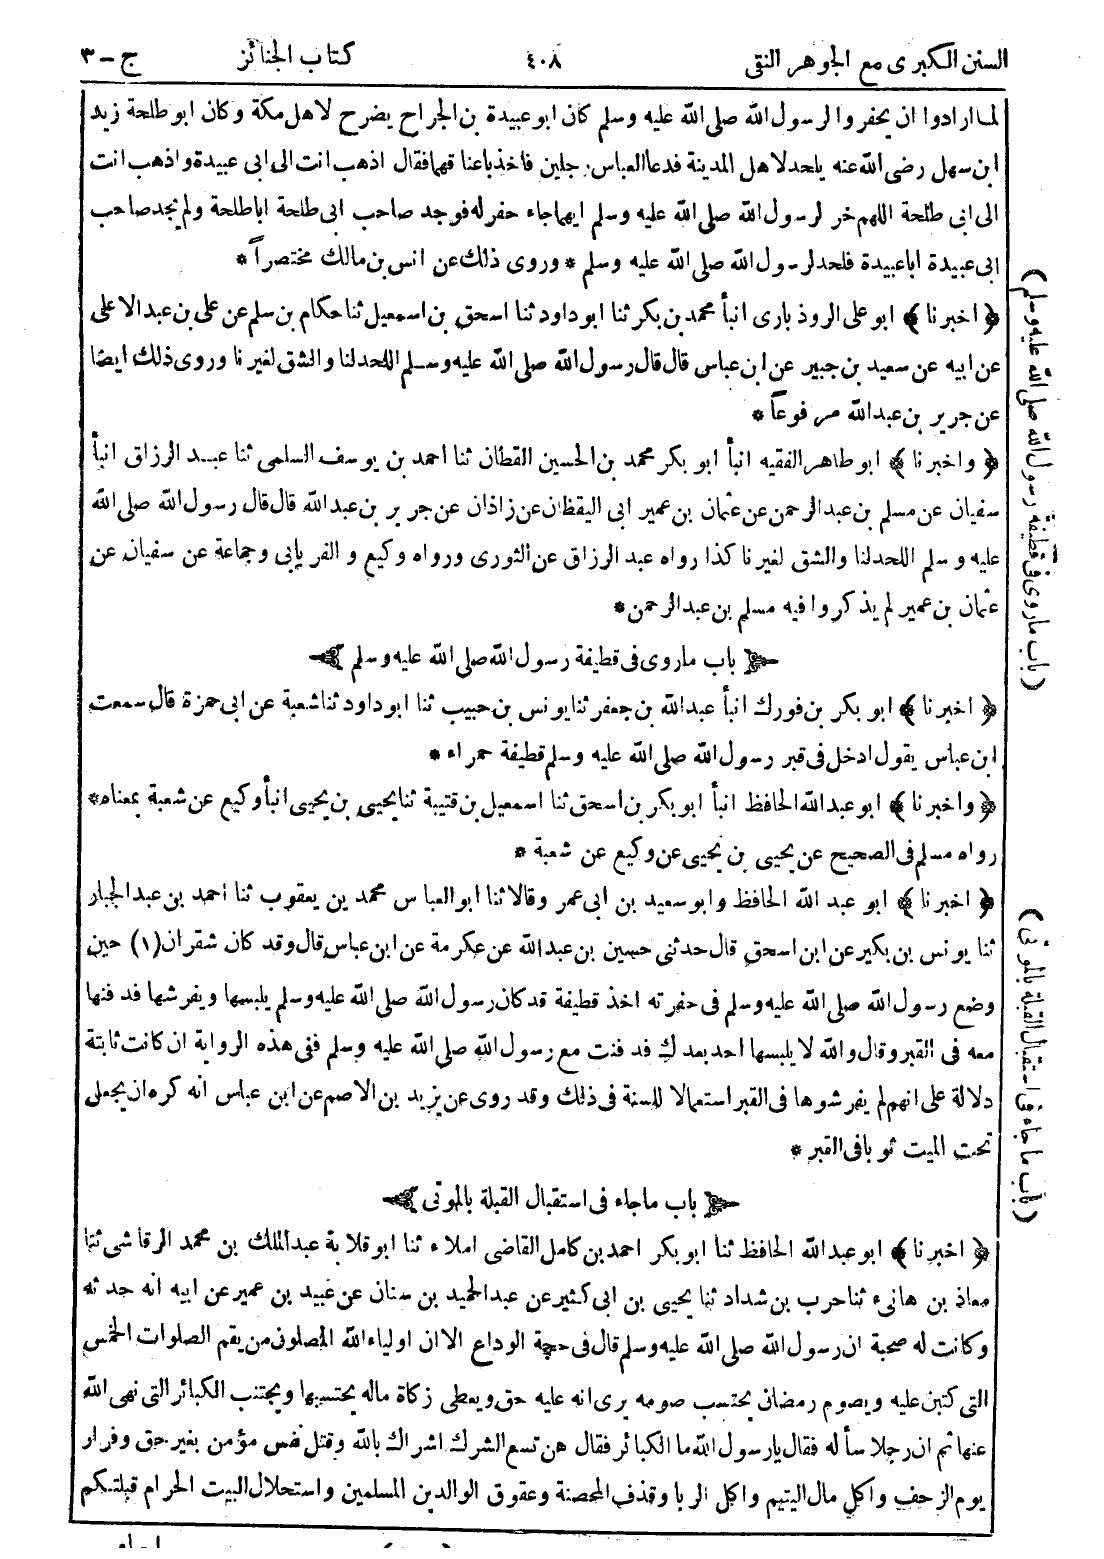 السنن الكبرى مع الجوهر النقى
٤٠٨
كتاب الجنائز
ج - ٣
لما ارادوا ان يحفروا لرسول الله صلى الله عليه وسلم كان ابو عبيدة بن الجراح يضرح لاهل مكة وكان ابو طلحة زيد
ابن سهل رضى الله عنه يلحد لاهل المدينة فدعا العباس رجلين فاخذ باعناقهما فقال اذهب انت الى ابى عبيدة واذهب انت
الى ابى طلحة اللهم خر لرسول الله صلى الله عليه وسلم ايهما جاء حفر له فوجد صاحب ابى طلحة اباطلحة ولم يجد صاحب
ابى عبيدة اباعبيدة فلحد لرسول الله صلى الله عليه وسلم * وروى ذلك عن انس بن مالك مختصراً *
﴿ اخبرنا ﴾ ابو على الروذبارى انبأ محمد بن بكر ثنا ابو داود ثنا اسحق بن اسمعيل ثنا حكام بن سلم عن على بن عبد الاعلى
عن ابيه عن سعيد بن جبير عن ابن عباس قال قال رسول الله صلى الله عليه وسلم اللحد لنا والشق لغيرنا وروى ذلك ايضا
عن جرير بن عبدالله مرفوعاً *
﴿ واخبرنا ﴾ ابو طاهر الفقيه انبأ ابو بكر محمد بن الحسين القطان ثنا احمد بن يوسف السلمى ثنا عبد الرزاق انبأ
سفيان عن مسلم بن عبد الرحمن عن عثمان بن عمير ابى اليقظان عن زاذان عن جرير بن عبدالله قال قال رسول الله صلى الله
عليه وسلم اللحد لنا والشق لغيرنا كذا رواه عبد الرزاق عن الثورى ورواه وكيع والفريابى وجماعة عن سفيان عن
عثمان بن عمير لم يذكروا فيه مسلم بن عبد الرحمن *
باب ماروى فى قطيفة رسول الله صلى الله عليه وسلم
﴿ اخبرنا ﴾ ابو بكر بن فورك انبأ عبدالله بن جعفر ثنا يونس بن حبيب ثنا ابو داود ثنا شعبة عن ابى حمزة قال سمعت
ابن عباس يقول ادخل فى قبر رسول الله صلى الله عليه وسلم قطيفة حمراء *
﴿ واخبرنا ﴾ ابو عبدالله الحافظ انبأ ابو بكر بن اسحق ثنا اسمعيل بن قتيبة ثنا يحيى بن يحيى انبأ وكيع عن شعبة بمعناه *
رواه مسلم فى الصحيح عن يحيى بن يحيى عن وكيع عن شعبة *
﴿ اخبرنا ﴾ ابو عبد الله الحافظ وابو سعيد بن ابى عمر وقالا ثنا ابو العباس محمد بن يعقوب ثنا احمد بن عبد الجبار
ثنا يونس بن بكير عن ابن اسحق قال حدثنى حسين بن عبدالله عن عكرمة عن ابن عباس قال وقد كان شقران (١) حين
وضع رسول الله صلى الله عليه وسلم فى حفرته اخذ قطيفة قد كان رسول الله صلى الله عليه وسلم يلبسها ويفرشها فدفنها
معه فى القبر وقال والله لا يلبسها احد بعدك فدفنت مع رسول الله صلى الله عليه وسلم ففى هذه الرواية ان كانت ثابتة
دلالة على انهم لم يفرشوها فى القبر استعمالا للسنة فى ذلك وقد روى عن يزيد بن الاصم عن ابن عباس انه كره ان يجعل
تحت الميت ثوبا فى القبر *
باب ماجاء فى استقبال القبلة بالموتى
﴿ اخبرنا ﴾ ابو عبدالله الحافظ ثنا ابو بكر احمد بن كامل القاضى املاء ثنا ابو قلابة عبد الملك بن محمد الرقاشى ثنا
معاذ بن هانىء ثنا حرب بن شداد ثنا يحيى بن ابى كثير عن عبد الحميد بن سنان عن عبيد بن عمير عن ابيه انه حدثه
وكانت له صحبة ان رسول الله صلى الله عليه وسلم قال فى حجة الوداع الا ان اولياء الله المصلون من يقم الصلوات الخمس
التى كتبن عليه ويصوم رمضان يحتسب صومه يرى انه عليه حق ويعطى زكاة ماله يحتسبها ويجتنب الكبائر التى نهى الله
عنها ثم ان رجلا سأله فقال يارسول الله ما الكبائر فقال هن تسع الشرك اشراك بالله وقتل نفس مؤمن بغير حق وفرار
يوم الزحف واكل مال اليتيم واكل الربا وقذف المحصنة وعقوق الوالدين المسلمين واستحلال البيت الحرام قبلتكم
(باب ماروى فى قطيفة رسول الله صلى الله عليه وسلم)
(باب ماجاء فى استقبال القبلة بالموتى)